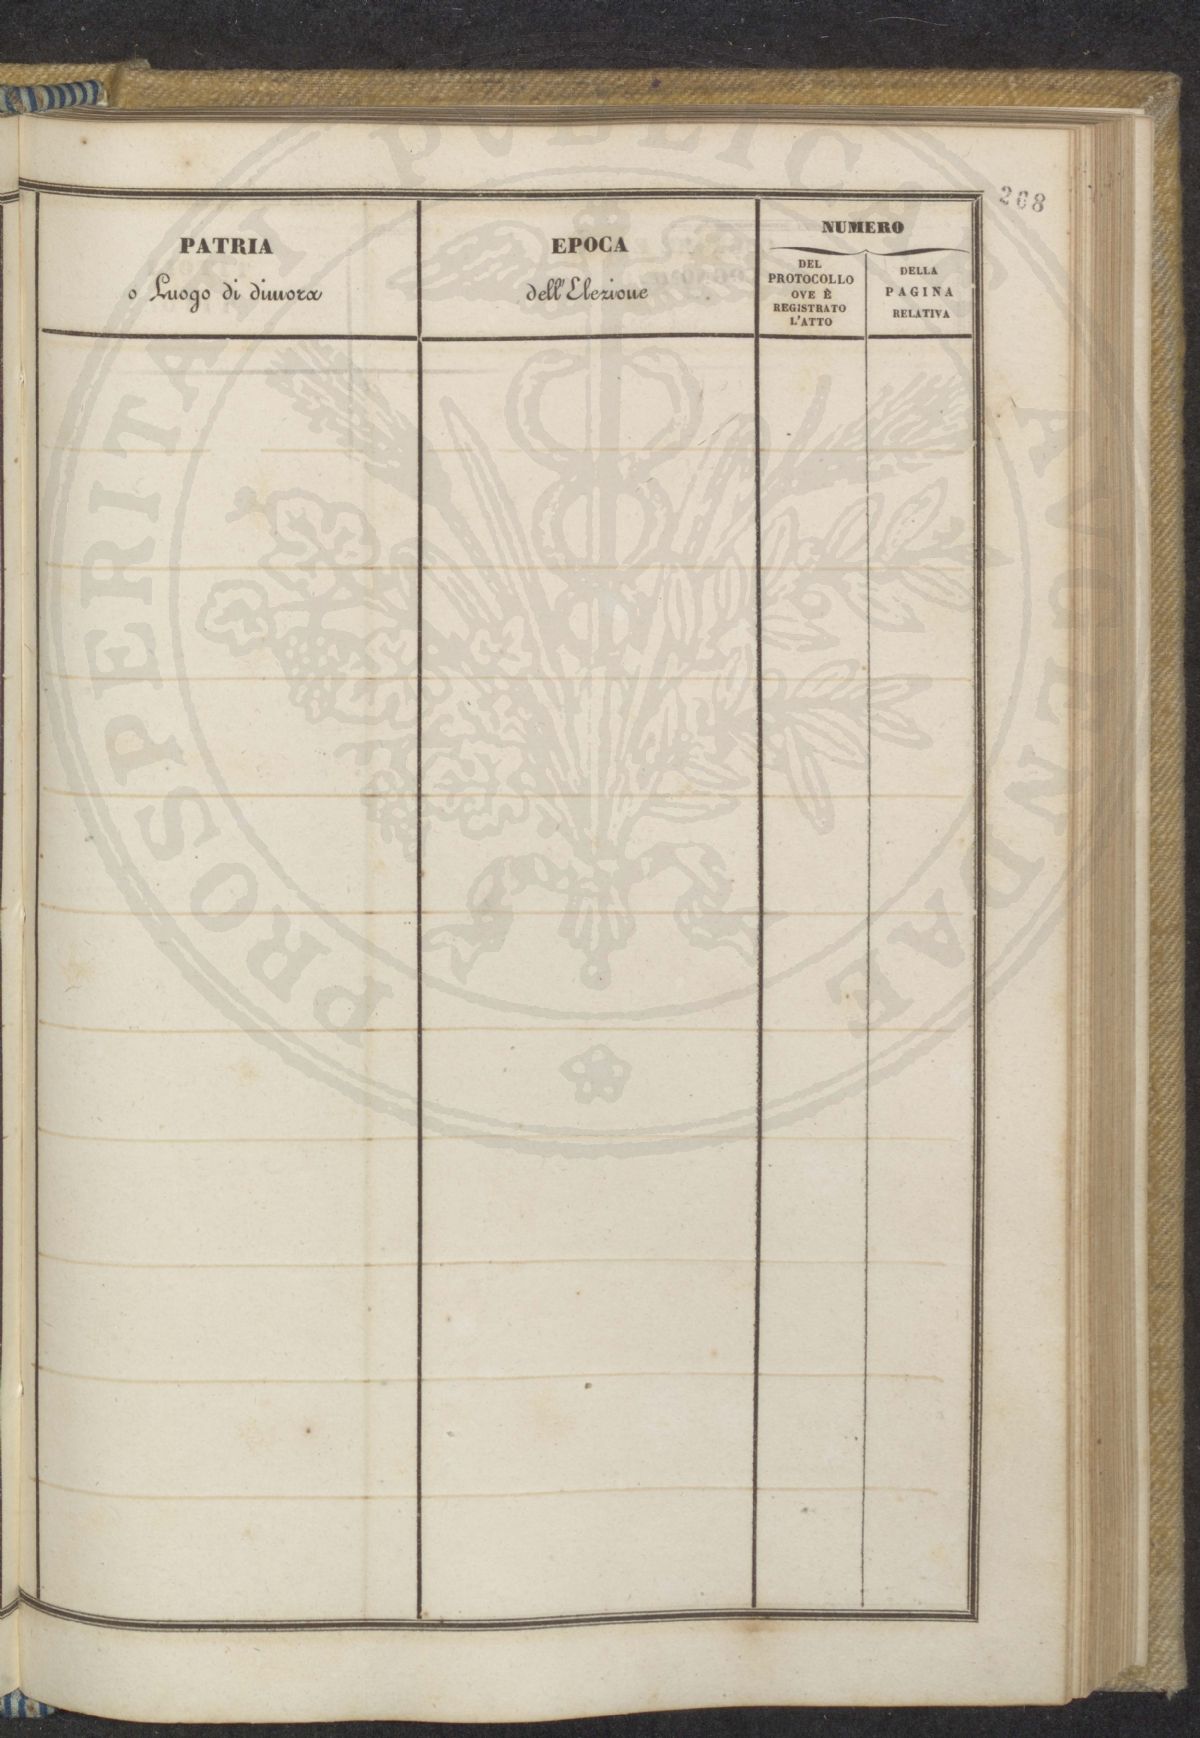 268
PATRIA
o Luogo di dimora
EPOCA
dell'Elezione
NUMERO
DEL
PROTOCOLLO
OVE È
REGISTRATO
L'ATTO
DELLA
PAGINA
RELATIVA
PROSPERITATI PUBLICAE AVGENDAE